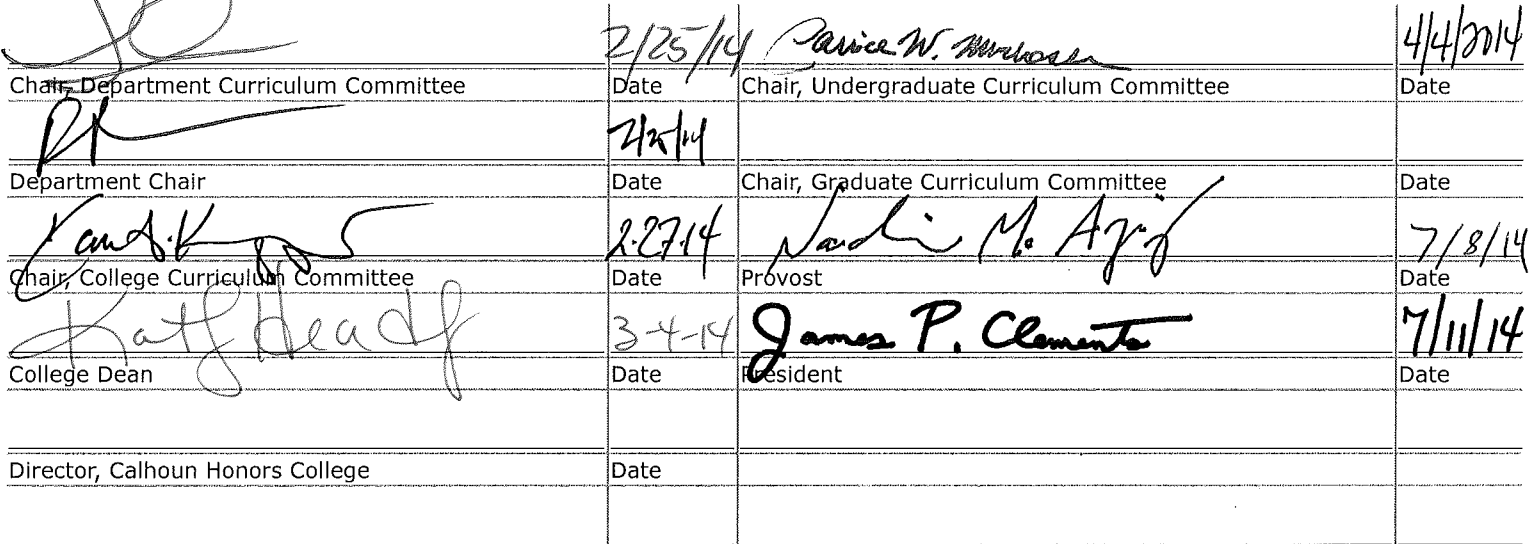 2/25/14 W. 4/4/2014
Chair, Department Curriculum Committee Date Chair, Undergraduate Curriculum Committee Date
Department Chair Date Chair, Graduate Curriculum Committee Date
2-27-14 M. 7/8/14
Chair, College Curriculum Committee Date Provost Date
3-4-14 James P. Clements 7/11/14
College Dean Date President Date
Director, Calhoun Honors College Date